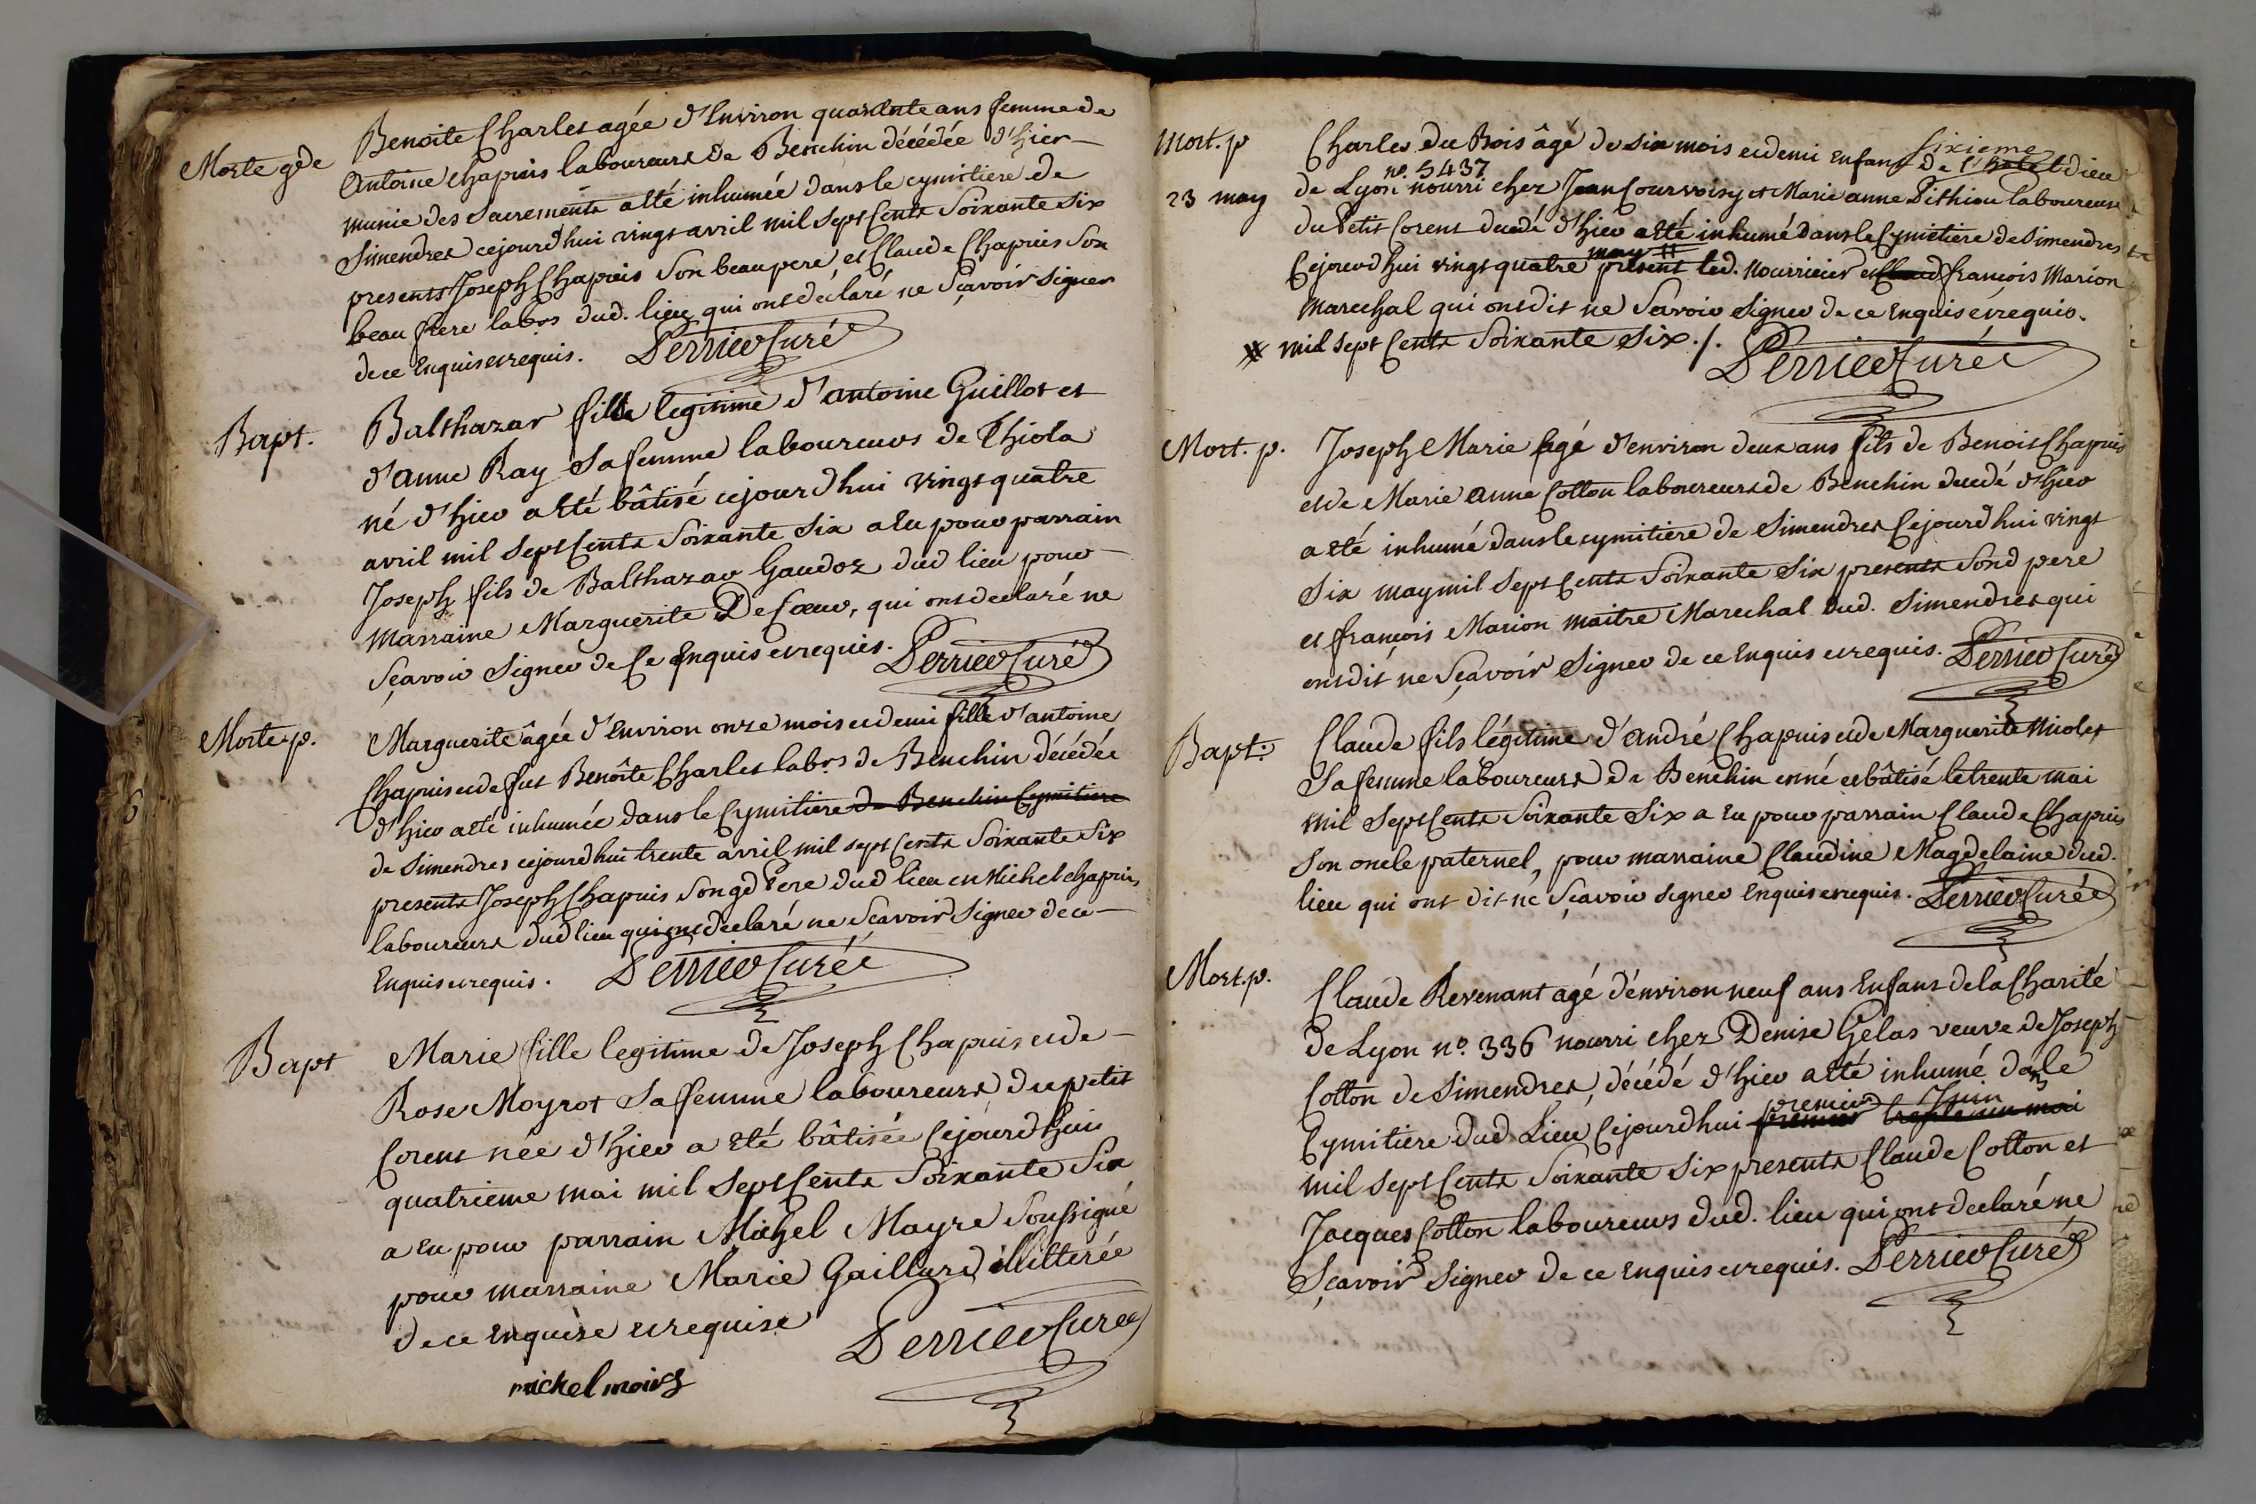 Morte gde
Benoite Charlet agée d'Environ quarante ans femme de
Antoine chapuis laboureurs de Benchin décédée d'hier
munie des Sacrements a Eté inhumée dans le cymitiere de
Simendres cejourd'hui vingt avril mil sept Cents Soixante Six
presents Joseph Chapuis Son beau pere et Claude Chapuis Son
beau frere labrs dud. lieu qui ont déclaré ne Sçavoir Signer
de ce Enquis et requis. Perrier Curé
Bapt.
Balthazar fils legitime d'antoine Guillot et
d'anne Ray Sa femme laboureurs de Thiola
né d'hier a Eté bâtisé cejourd'hui vingt quatre
avril mil Sept Cents Soixante Six a Eu pour parrain
Joseph fils de Balthazar Gaudoz dud lieu pour
Marraine Marguerite De Cœur, qui ont declaré ne
Sçavoir Signer de Ce Enquis et requis. Perrier Curé
Morte p.
Marguerite âgée d'Environ onze mois et demi fille d'antoine
Chapuis et de fut Benoîte Charlet labrs de Benchin décédée
d'hier a eté inhumée dans le Cymitiere de Benchin Cymitiere
de Simendres cejourd'hui trente avril mil sept Cents Soixante Six
presents Joseph Chapuis Son gd Pere dud lieu et Michel chapuis
laboureurs dud lieu qui ont declaré ne Sçavoir Signer de ce
Enquis et requis. Perrier Curé
Bapt
Marie fille legitime de Joseph Chapuis et de
Rose Moyrot Sa femme laboureurs du petit
Corent née d'hier a Eté bâtisée Cejourd'hui
quatrieme mai mil Sept Cents Soixante Six
a Eu pour parrain Michel Mayre Soussigné
pour marraine Marie Gaillard illitterée
de ce Enquise et requise
Perrier Curé
michel
Mort. p
23 may
Charles du Bois âgé de six mois et demi Enfant de l'hotel dieu
sixieme
de Lyon no. 5437 nourri chez Jean Courvoisy et Marie anne Pithiou laboureurs
du Petit Corent decedé d'hier a eté inhumé dans le Cymetiere de Simendres
Cejourd'hui vingt quatre may # present led. Nourricier et Claud françois Marion
Marechal qui ont dit ne Savoir Signer de ce Enquis et requis.
# mil Sept Cents Soixante Six ./. Perrier Curé
Mort. p.
Joseph Marie agé d'environ deux ans fils de Benoit Chapuis
et de Marie Anne Cotton laboureurs de Benchin decedé d'hier
a eté inhumé dans le cymitiere de Simendres Cejourd'hui vingt
Six may mil Sept Cents Soixante Six presents Sond pere
et françois Marion maitre Marechal dud. Simendres qui
ont dit ne Sçavoir Signer de ce Enquis et requis. Perrier Curé
Bapt.
Claude fils légitime d'André Chapuis et de Marguerite Niolet
Sa femme laboureurs de Benchin est né et bâtisé le trente mai
mil Sept Cents Soixante Six a Eu pour parrain Claude Chapuis
Son oncle paternel, pour marraine Claudine Magdelaine dud.
lieu qui ont dit ne Sçavoir Signer Enquis et requis. Perrier Curé
Mort. p.
Claude Revenant agé d'environ neuf ans Enfant de la Charité
de Lyon no. 336 nourri chez Denise Gelas veuve de Joseph
Cotton de Simendres, décédé d'hier a eté inhumé dans le
Cymitiere dud. Lieu Cejourd'hui premier trente un mai
premier Juin
mil Sept Cents Soixante Six presents Claude Cotton et
Jacques Cotton laboureurs dud. lieu qui ont declaré ne
Sçavoir Signer de ce Enquis et requis. Perrier Curé